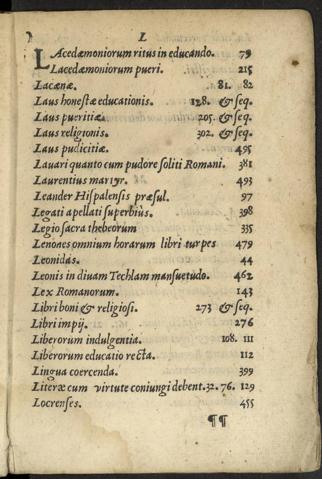 L
LAcedæmoniorum ritus in educando. 79
Lacedæmoniorum pueri. 215
Lacænæ. 81. 82
Laus honestæ educationis. 128. & seq.
Laus pueritiæ. 205. & seq.
Laus religionis. 302. & seq.
Laus pudicitiæ. 495
Lauari quanto cum pudore soliti Romani. 381
Laurentius martyr. 493
Leander Hispalensis præsul. 97
Legati apellati superbiùs. 398
Legio sacra thebeorum 335
Lenones omnium horarum libri turpes 479
Leonidas. 44
Leonis in diuam Techlam mansuetudo. 462
Lex Romanorum. 143
Libri boni & religiosi. 273 & seq.
Libri impij. 276
Liberorum indulgentia. 108. 111
Liberorum educatio recta. 112
Lingua coercenda. 399
Literæ cum virtute coniungi debent. 32. 76. 129
Locrenses. 455
¶¶